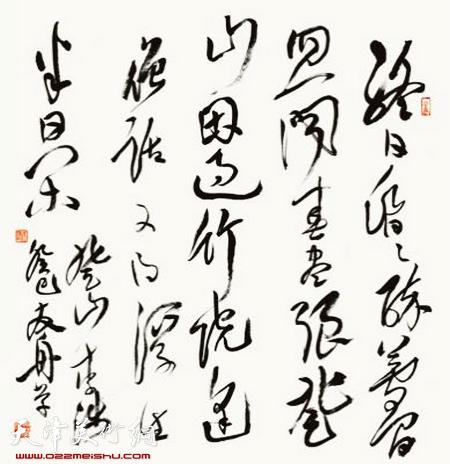 終日昏々醉夢間
忽聞春盡强登
山因過竹院逢
僧話又得浮生
半日閑
登山李涉
天津美术网
www.022meishu.com